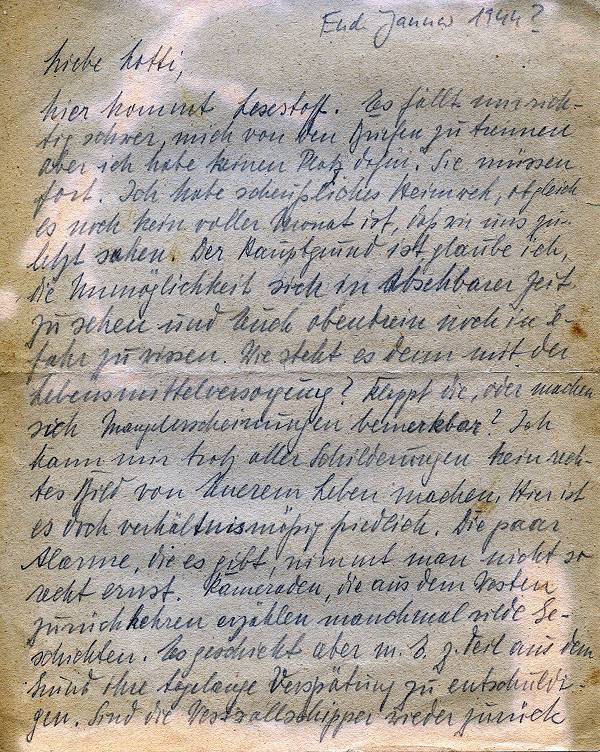 Ende Januar 1944?
Liebe Lotti,
hier kommt Lesestoff. Es fällt mir rich-
tig schwer, mich von den zu trennen
aber ich habe keinen Platz dafür. Sie müssen
fort. Ich habe scheußliches Heimweh, obgleich
es noch kein voller Monat ist, daß wir uns zu-
letzt sahen. Der Hauptgrund ist glaube ich,
die Unmöglichkeit sich in absehbarer Zeit
zu sehen und Euch obendrein noch in Ge-
fahr zu wissen. Wie steht es denn mit der
Lebensmittelversorgung? Klappt die, oder machen
sich Mangelerscheinungen bemerkbar? Ich
kann mir trotz aller Schilderungen kein rech-
tes Bild von Euerem Leben machen. Hier ist
es doch verhältnismäßig friedlich. Die paar
Alarme, die es gibt, nimmt man nicht so
recht ernst. Kameraden, die aus dem Westen
zurückkehren erzählen manchmal wilde Ge-
schichten. Es geschieht aber m. E. z. Teil aus dem
Grund ihre tagelange Verspätung zu entschuldi-
gen. Sind die wieder zurück